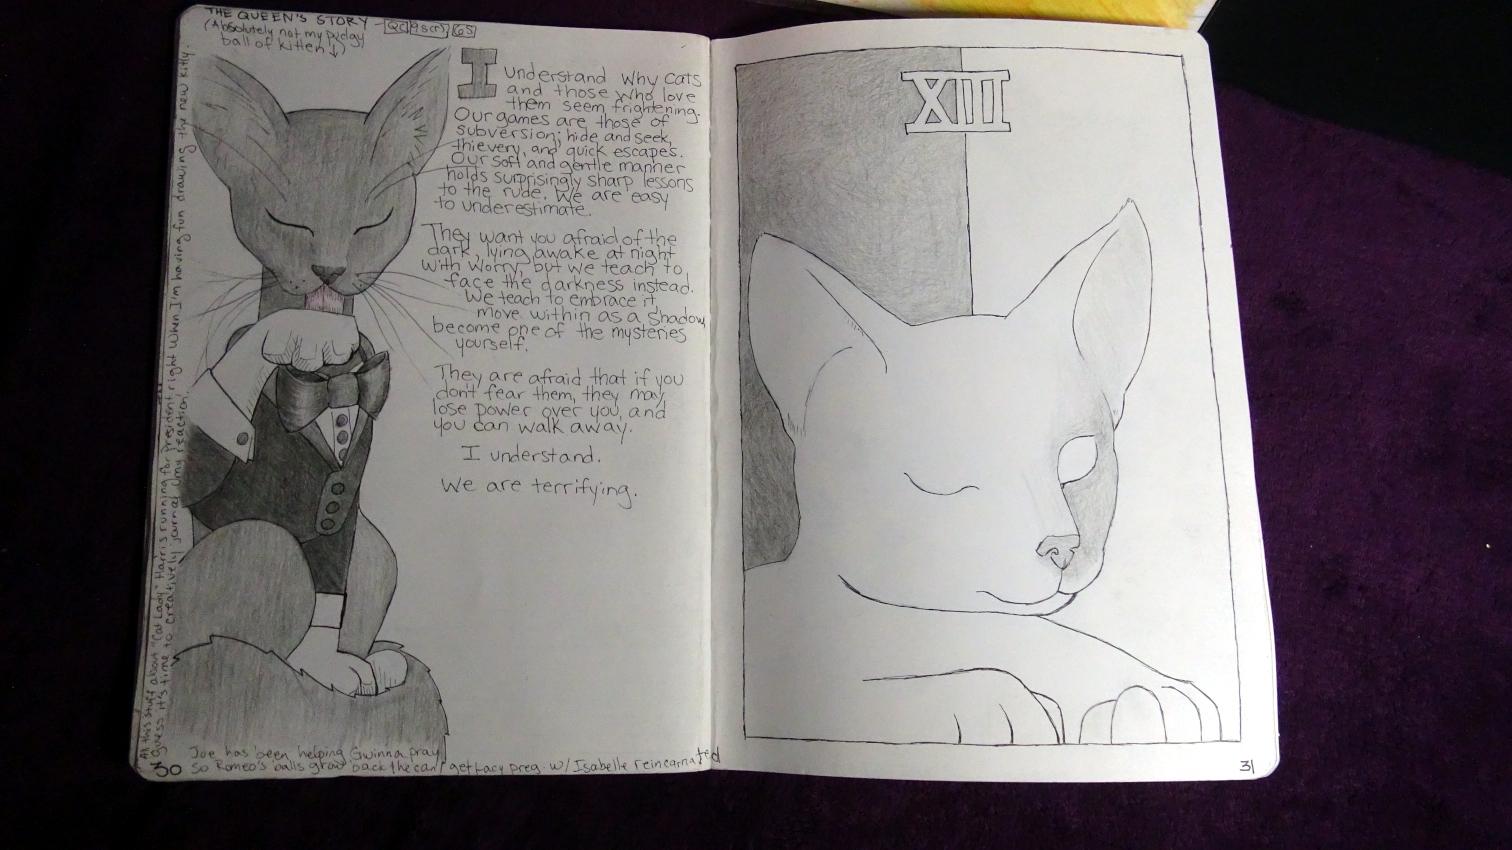 THE QUEEN'S STORY
(Absolutely not my pudgy
ball of kitten ↓)
I understand why cats
and those who love
them seem frightening.
Our games are those of
subversion; hide and seek,
thievery, and quick escapes.
Our soft and gentle manner
holds surprisingly sharp lessons
to the rude. We are easy
to underestimate.
They want you afraid of the
dark, lying awake at night
with worry, but we teach to
face the darkness instead.
We teach to embrace it,
move within as a shadow,
become one of the mysteries
yourself.
They are afraid that if you
don't fear them, they may
lose power over you, and
you can walk away.
I understand.
We are terrifying.
All this stuff about "Cat Lady" Harris running for president right when I'm having fun drawing the new kitty.
guess it's time to creatively journal my reaction!
Joe has been helping Gwinna pray
so Romeo's balls grow back the can get Lacy preg. w/ Isabelle reincarnated
30
XIII
31